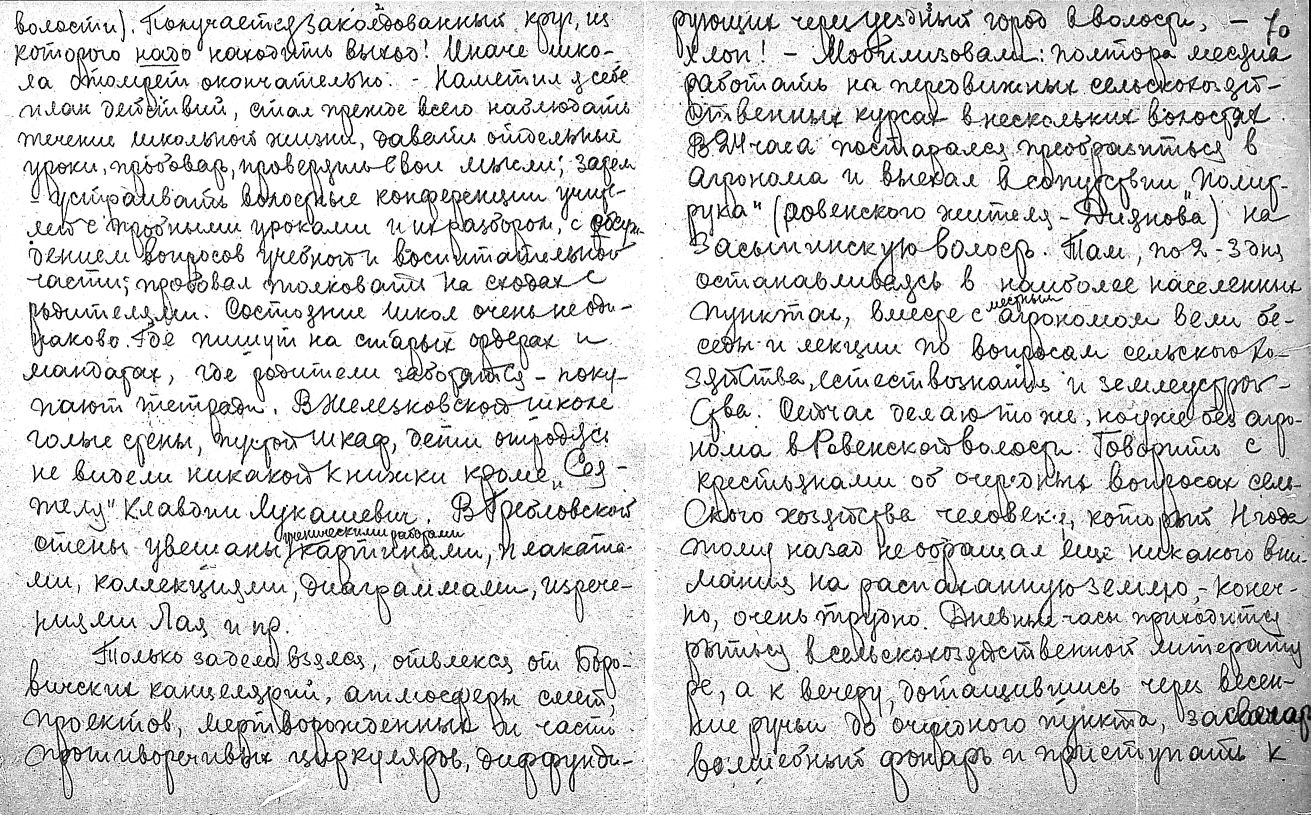 волости). Получается заколдованный круг, из
которого надо находить выход! Иначе шко-
ла отомрет окончательно. - Наметил я себе
план действий, стал прежде всего наблюдать
течение школьной жизни, давать отдельные
уроки, пробовал, проверял свои мысли; затем
- устраивать волостные конференции учит-
лей с пробными уроками и их разбором, с обсуж-
дением вопросов учебной и воспитательной
части; пробовал толковать на сходах с
родителями. Состояние школ очень неоди-
наково. Где пишут на старых ордерах и
мандатах, где родители заботятся - поку-
пают тетради. В Железковской школе
голые стены, пустой шкаф, дети отродясь
не видели никакой книжки кроме „Сея-
телу" Клавдии Лукашевич. В Гребловской
стены увешаны ученическими работами картинами, плаката-
ми, коллекциями, диаграммами, изрече-
ниями Лая и пр.
Только за дела взялся, отвлекся от Боро-
вичских канцелярий, атмосферы смет,
проектов, мертворожденных и часто
противоречивых циркуляров, диффунди-
рующих через уездный город в волости, - 70
хлоп! - Мобилизовали: полтора месяца
работать на передвижных сельскохозяй-
ственных курсах в нескольких волостях.
В 24 часа постарался преобразиться в
агронома и выехал в сопутствии „Полит-
рука" (ровенского жителя - Диянова) на
Засыпинскую волость. Там, по 2-3 дня
останавливаясь в наиболее населенных
пунктах, вместе с местным агрономом вели бе-
седы и лекции по вопросам сельского хо-
зяйства, естествознания и землеустрой-
ства. Сейчас делаю то же, но уже без агро-
нома в Ровенской волости. Говорить с
крестьянами об очередных вопросах сель-
ского хозяйства человеку, который 1/2 года
тому назад не обращал еще никакого вни-
мания на распаханную землю, - конеч-
но, очень трудно. Дневные часы приходится
рыться в сельскохозяйственной литерату-
ре, а к вечеру, дотащившись через весен-
ние ручьи до очередного пункта,
волшебный фонарь и приступать к